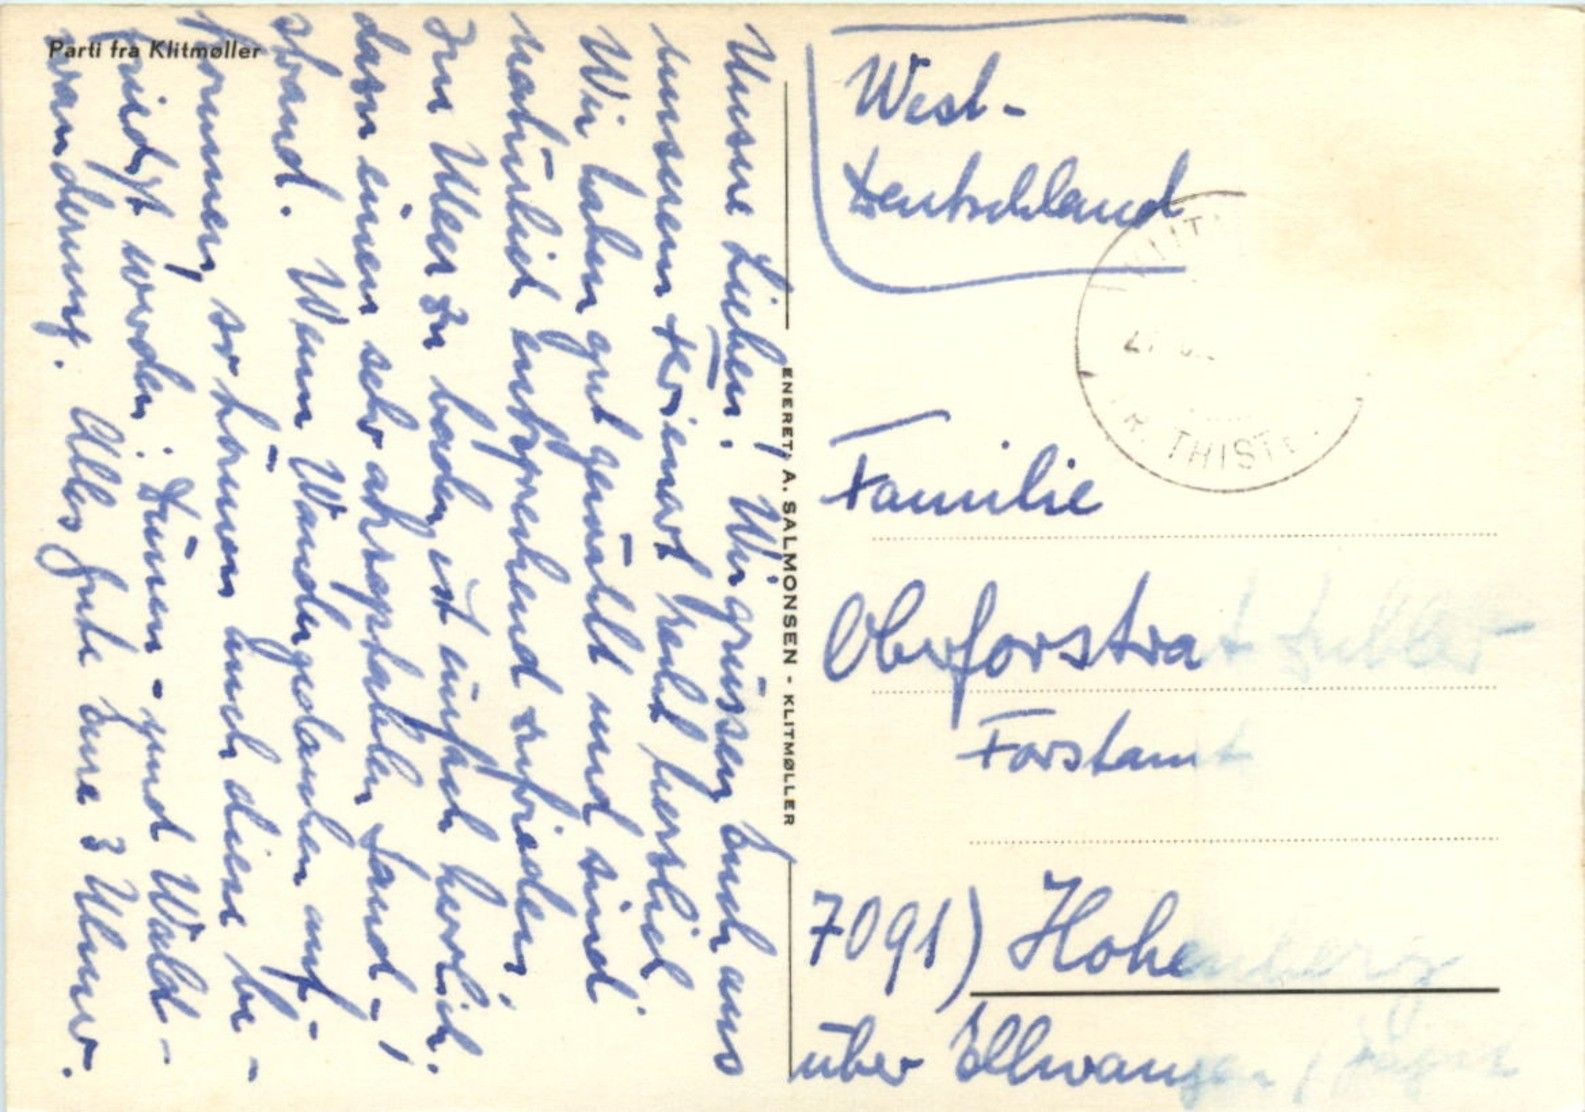 Parti fra Klitmøller
Unsere Lieben. Wir grüssen Euch aus
unserem Ferienort recht herzlich
Wir haben gut gewählt und sind
natürlich entsprechend zufrieden,
Im Meer zu baden, ist einfach herrlich.
dazu einen sehr akzeptablen Sand-
strand. Wenn Wandergedanken auf-
kommen, so können auch diese be-
friedigt werden: Dünen- und Wald-
wanderung. Alles Gute Eure 3 Ulmer.
ENERET, A. SALMONSEN - KLITMØLLER
West-
Deutschland
KLIT
PR. THIST
Familie
Oberforstrat
Forstamt
7091) Hohenberg
über Ellwangen